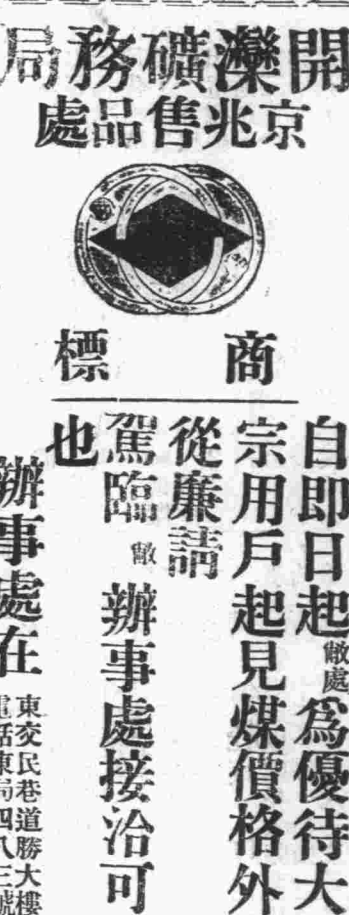 開灤礦務局
京兆售品處
商標
自即日起敝處爲優待大
宗用戶起見煤價格外
從廉請
駕臨敝辦事處接洽可
也
辦事處在
東交民巷道勝大樓
電話東局四八三號